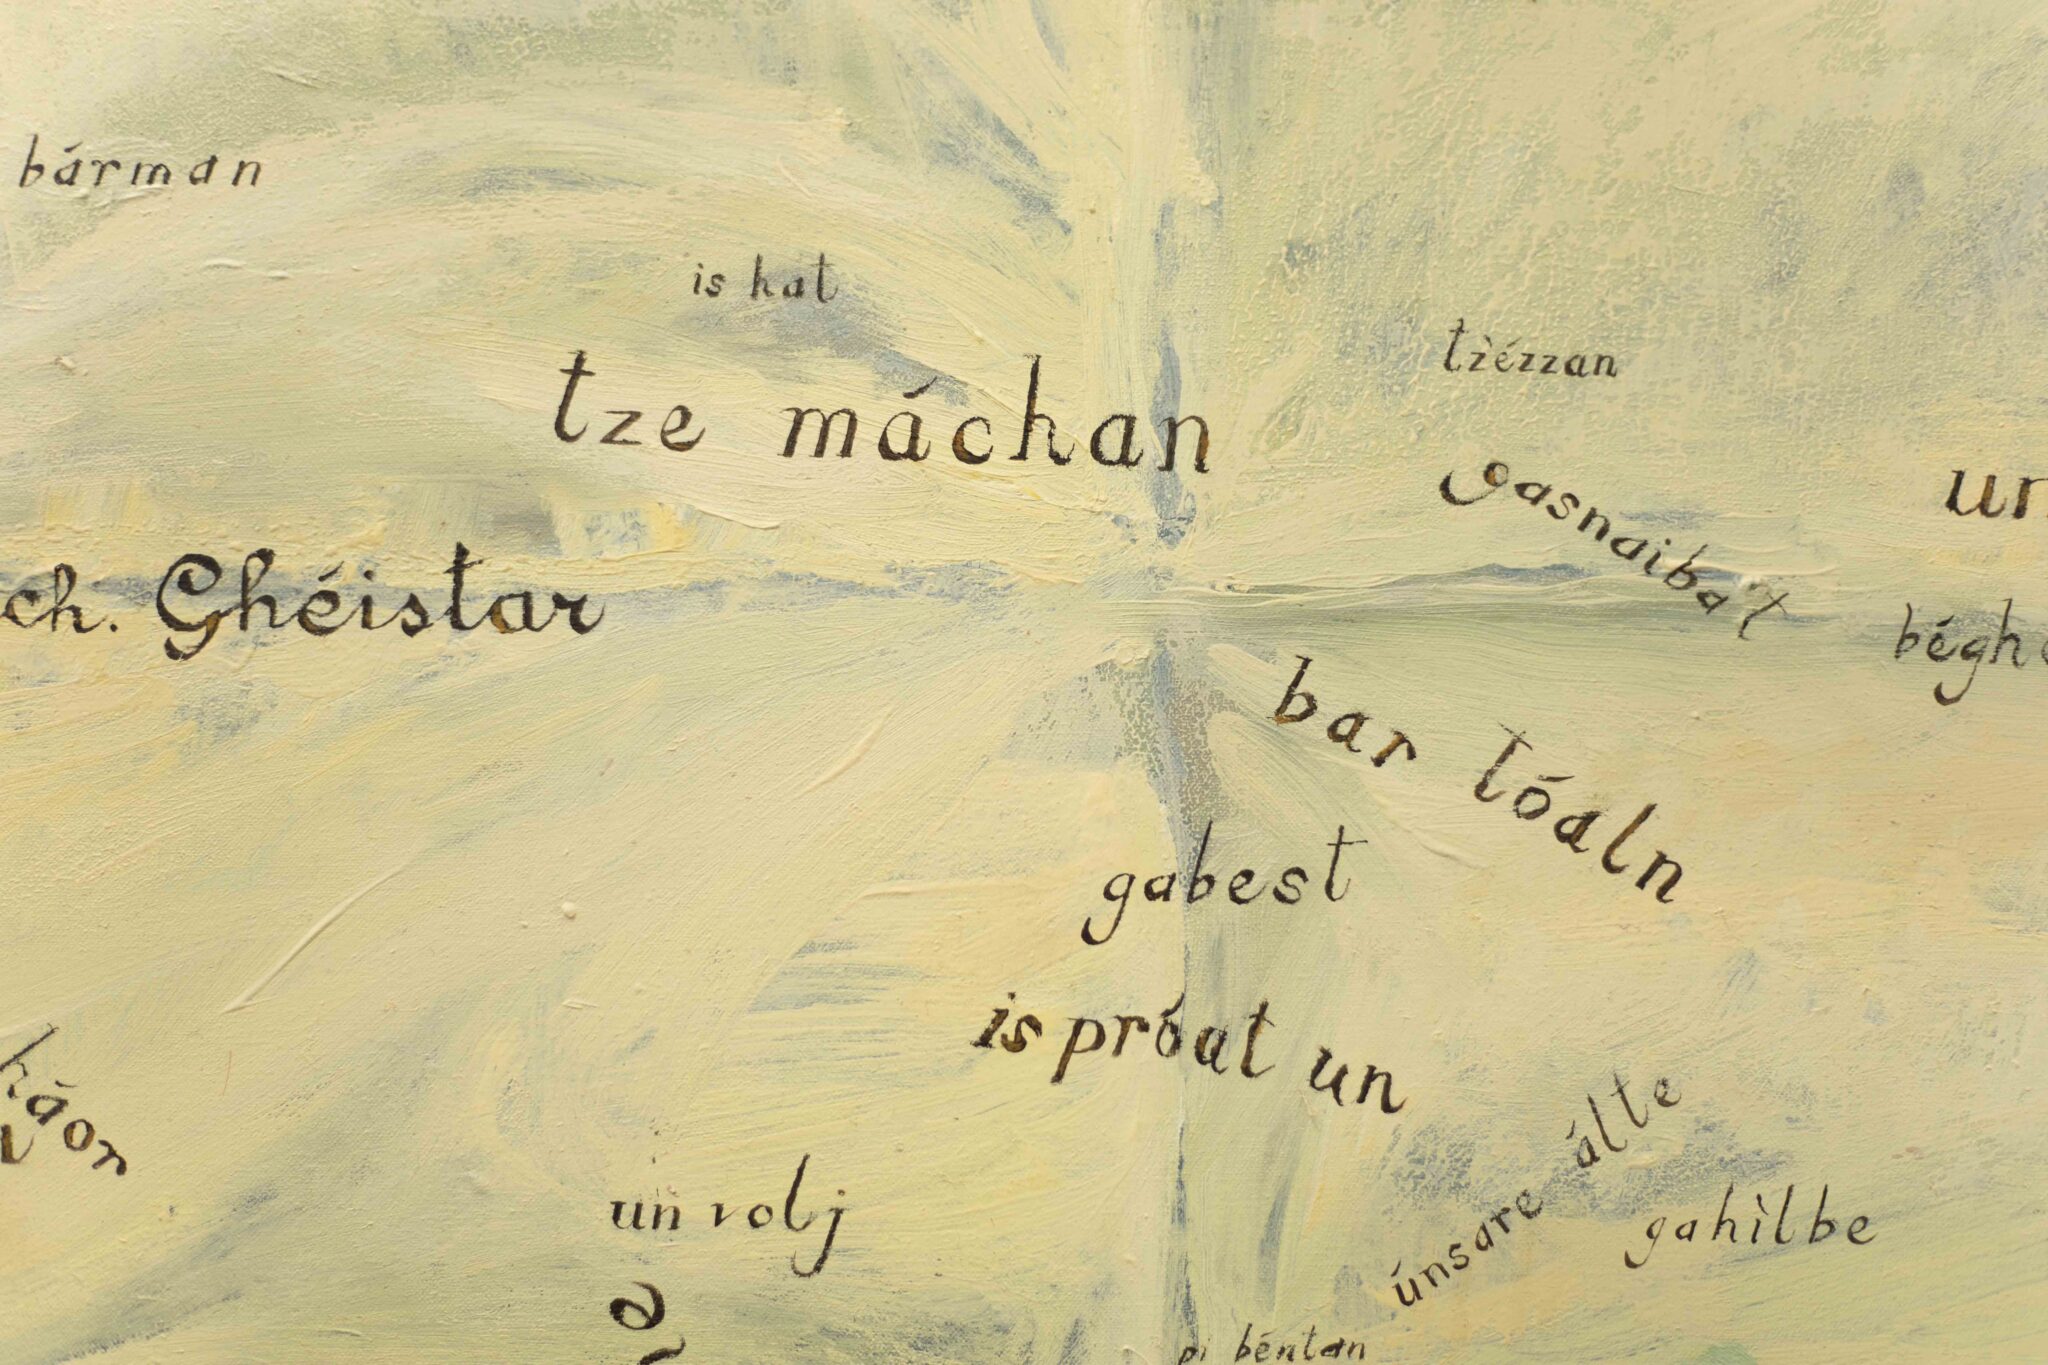 bárman
is hat
tze máchan
tzèzzan
gasnaibat
ch. Ghéistar
bar tóaln
gabest
is próat un
háor
únsare álte
gahìlbe
un volj
pi béntan